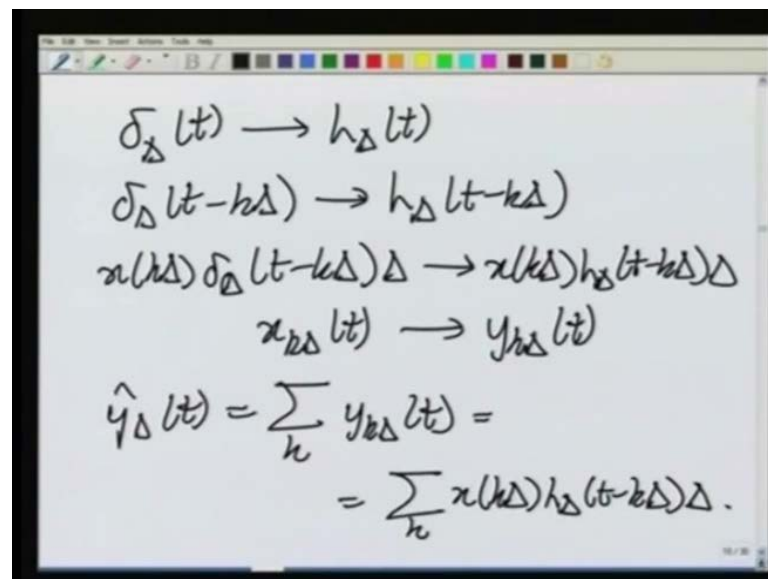 File Edit View Insert Actions Tools Help
B I
δ_Δ(t) → h_Δ(t)
δ_Δ(t-kΔ) → h_Δ(t-kΔ)
x(kΔ)δ_Δ(t-kΔ)Δ → x(kΔ)h_Δ(t-kΔ)Δ
x_{kΔ}(t) → y_{kΔ}(t)
ŷ_Δ(t) = Σ_k y_{kΔ}(t) =
= Σ_k x(kΔ)h_Δ(t-kΔ)Δ.